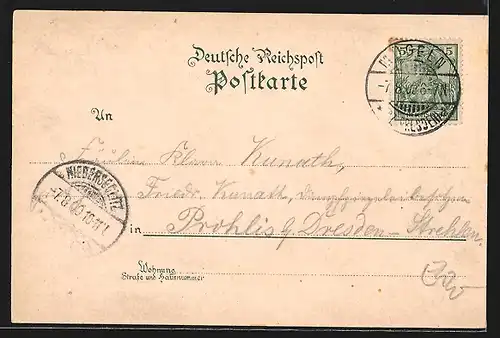 Deutsche Reichspost
Postkarte
5 5
MÜGELN
-7.8.00 6-7N.
DRESDEN
An
Fräulein Clara Kunath,
Friedr. Kunath,
in Prohlis b/Dresden-Strehlen.
NIEDERSEDLITZ
-7.8.00.10-11V.
Wohnung
Straße und Hausnummer